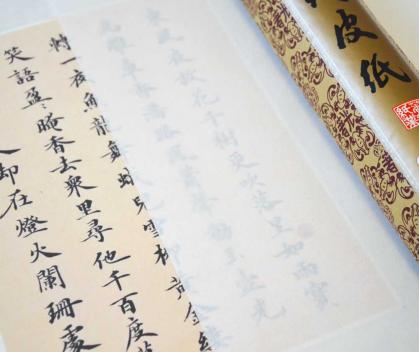 皮紙
東風夜放花千樹更吹落星如雨寶
馬雕車香滿路鳳簫聲動玉壺光
轉一夜魚龍舞蛾兒雪柳黃金縷
笑語盈〻晻香去衆里尋他千百度驀
人却在燈火闌珊處